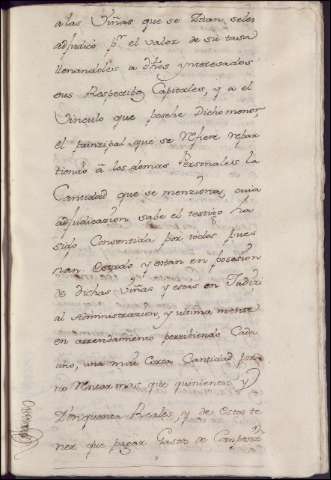 a las Viñas que se Citan, seles
adjudico pr. el valor de su tasa
llenandoles a dhos ynteresados
sus Respectibos Capitales, y a el
Vinculo que posehe Dicho menor,
el principal que se Refiere repar
tiendo a los demas Personales la
Cantidad que se menziona, cuia
adjudicacion sabe el testigo ha
sido Consentida por todos pues
han estado y estan en posesion
de dichas Viñas y estas en
al Administrazion, y ultima mente
en arrendamiento perciviendo Cada
uno, una mui Corta Cantidad por
no Rentar mas que quinientos y
Zinquenta Reales, y de estos te
ner que pagar Gastos de